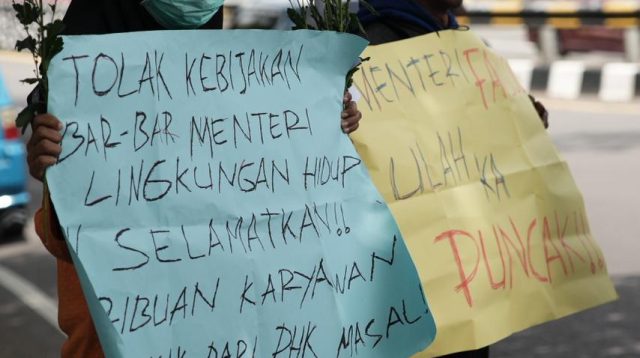 TOLAK KEBIJAKAN
BAR-BAR MENTERI
LINGKUNGAN HIDUP
SELAMATKAN!!
RIBUAN KARYAWAN
DARI PHK MASAL!
MENTERI
ULAH
KA
PUNCAK!!!